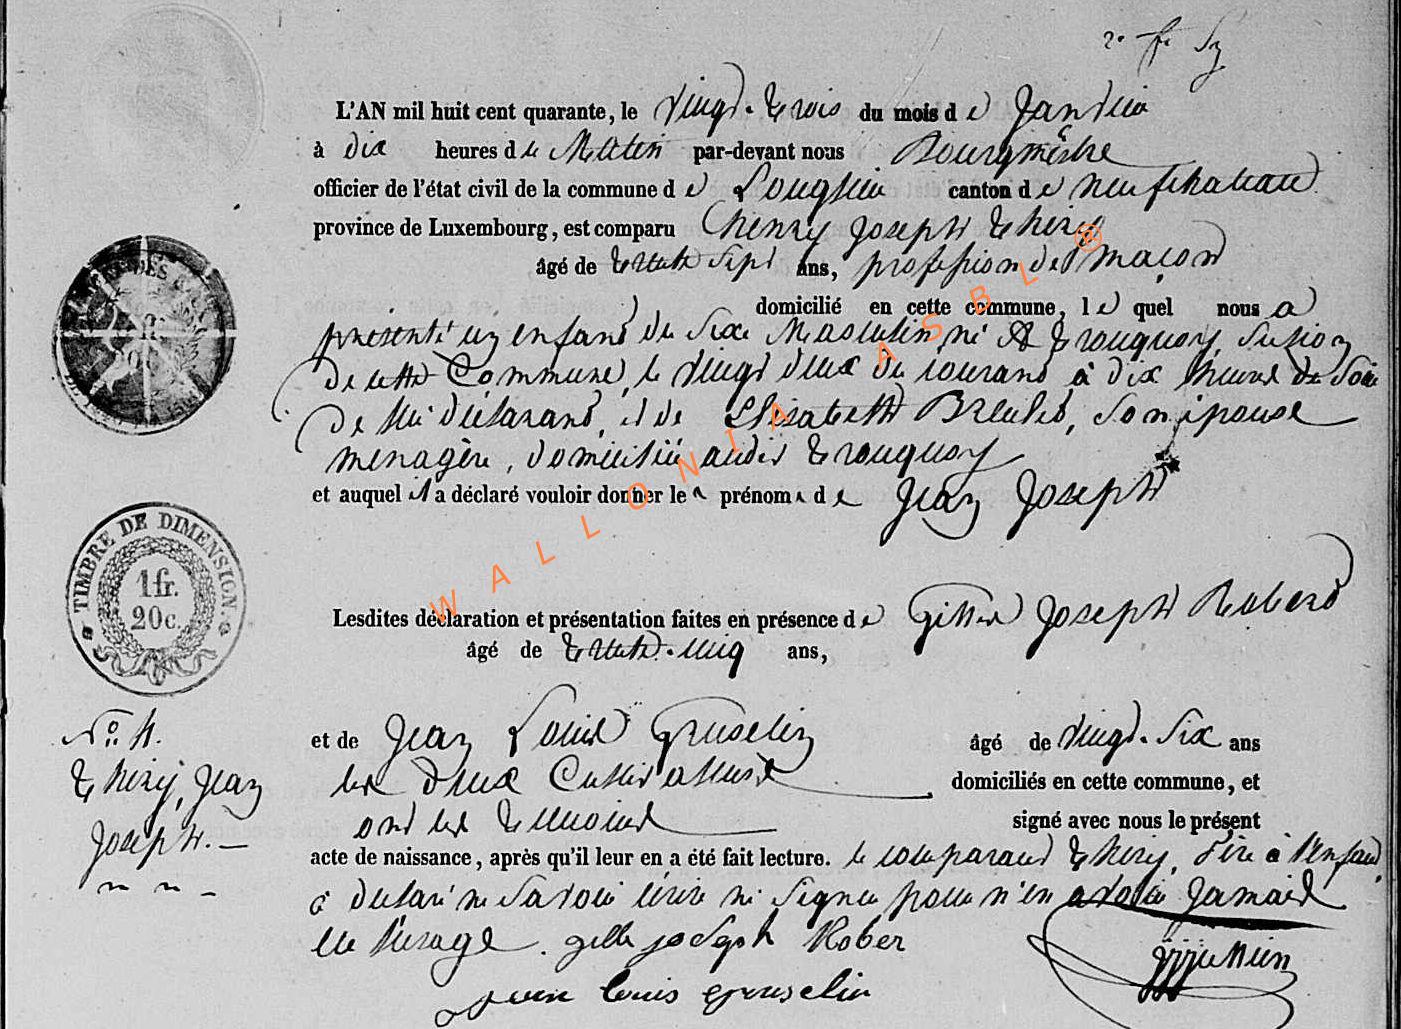 L'AN mil huit cent quarante, le vingt-trois du mois de Janvier
à dix heures du Matin par-devant nous Bourgmestre
officier de l'état civil de la commune de Longlier canton de neufchateau
province de Luxembourg, est comparu henry Joseph thiry
âgé de trente sept ans, profession de maçon
domicilié en cette commune, lequel nous a
présenté un enfant du sexe Masculin né à tronquoy, section
de cette Commune, le vingt deux du courant à dix heures du soir
de lui déclarant, et de Elisabeth, son épouse
menagère, domiciliée audit tronquoy
et auquel il a déclaré vouloir donner le prénom de Jean Joseph
TIMBRE DE DIMENSION.
1 fr.
20 c.
Lesdites déclaration et présentation faites en présence de Gilles Joseph Robert
âgé de trente-cinq ans,
et de Jean Louis Gruselin âgé de vingt-six ans
les deux Cultivateurs domiciliés en cette commune, et
ont les témoins signé avec nous le présent
acte de naissance, après qu'il leur en a été fait lecture. le comparant thiry, père à l'enfant,
à déclaré ne savoir écrire ni signer pour n'en avoir Jamais
eu l'usage.
N° 4.
thiry, Jean
Joseph.
gille joseph Rober
jean louis gruselin
WALLONIA ASBL ®